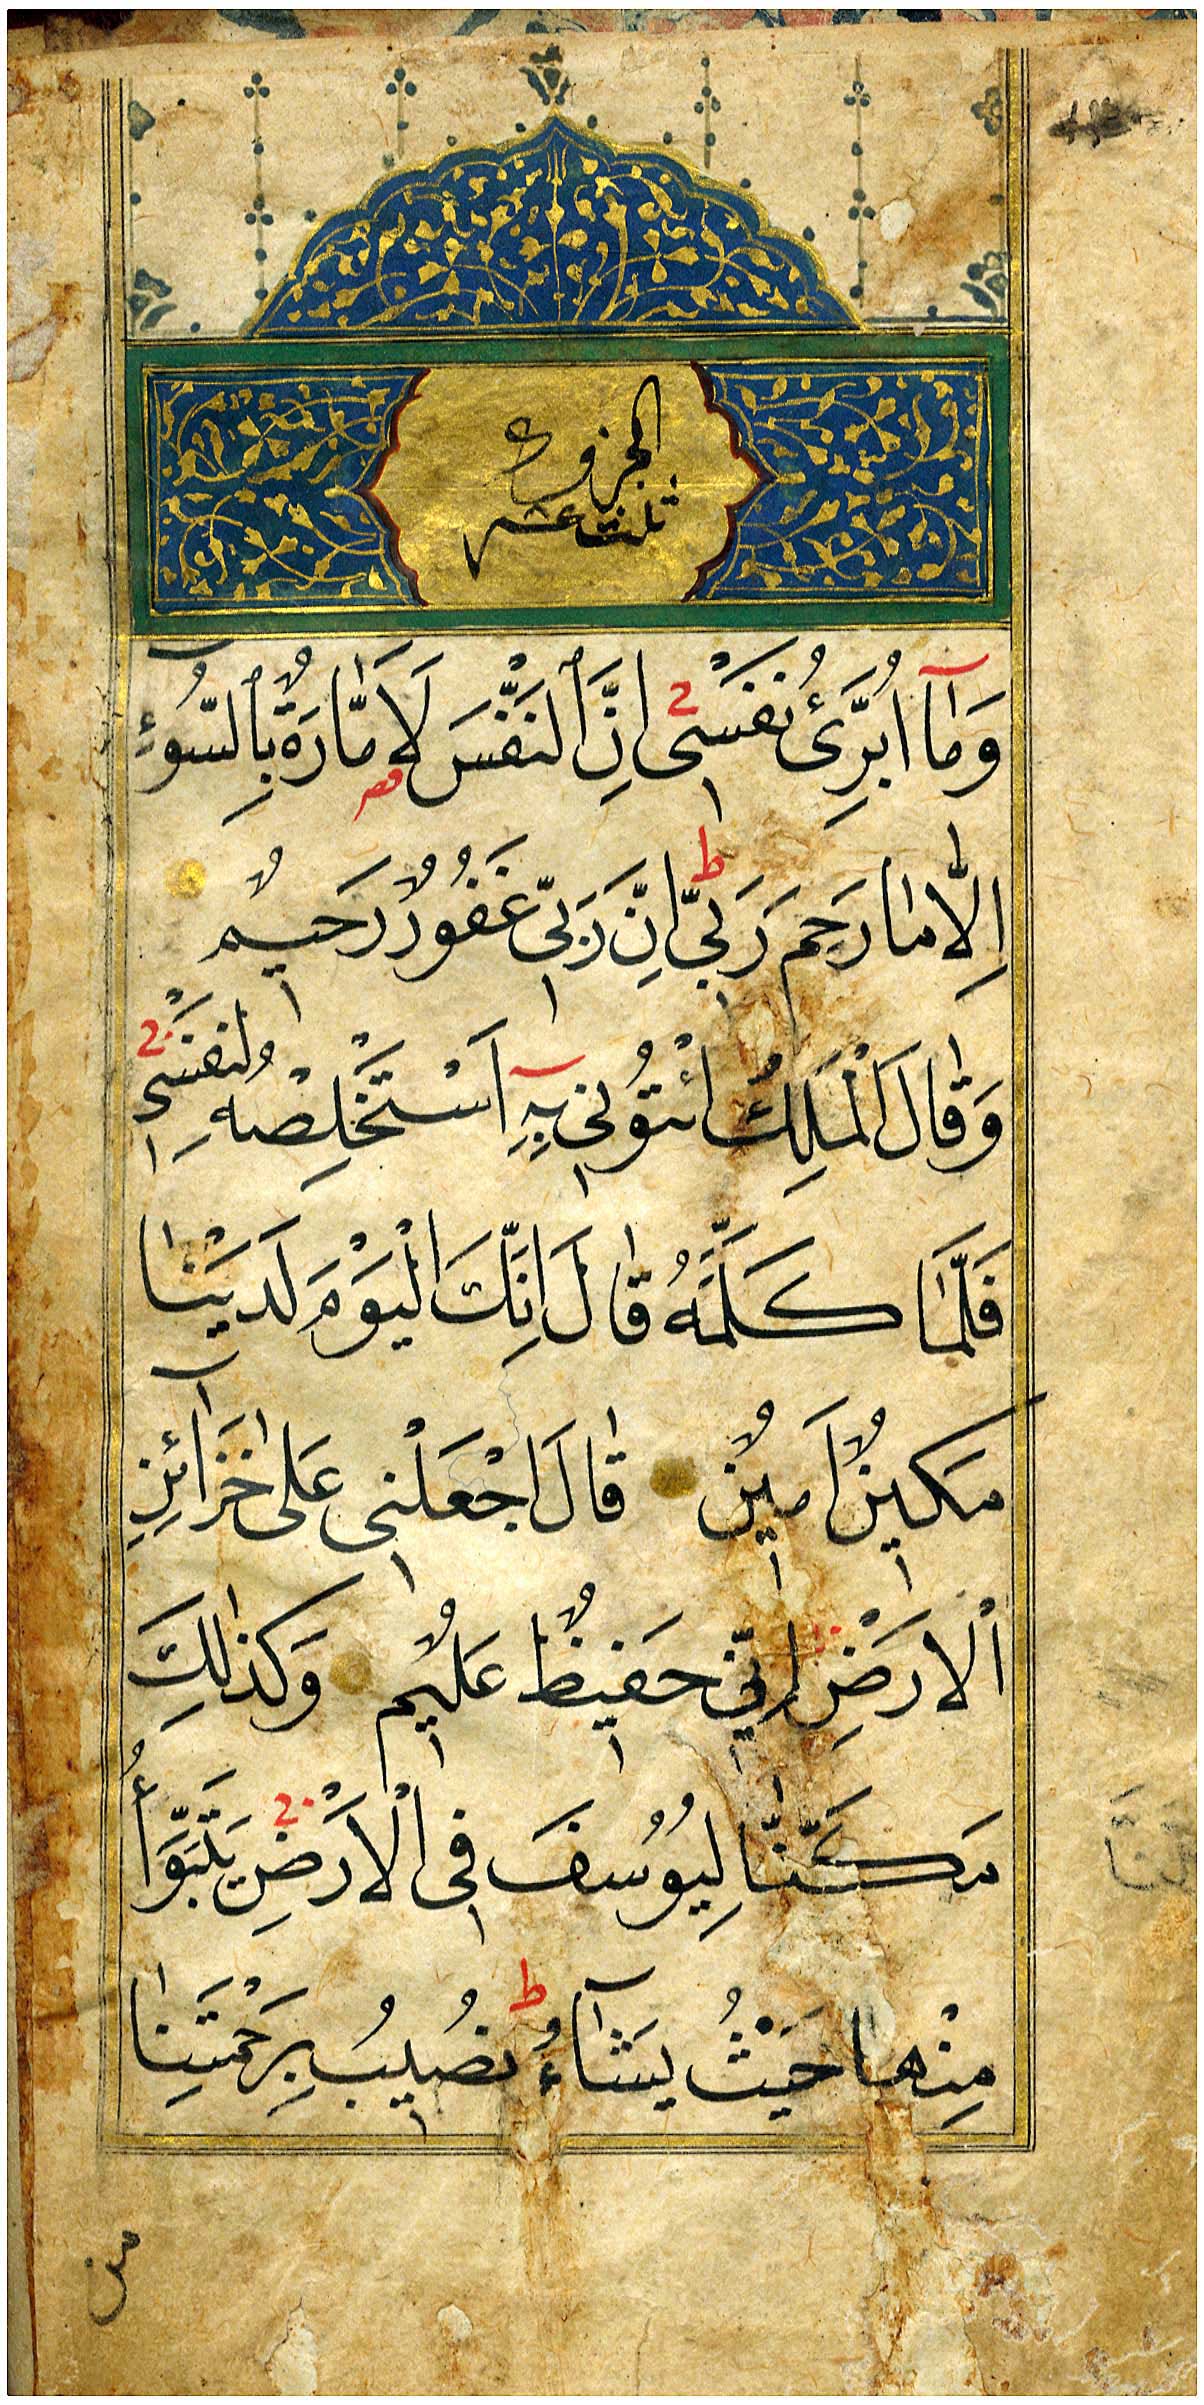 الجزو
ثلث عشر
وَمَآ اُبَرِّئُ نَفْسٖى اِنَّ النَّفْسَ لَاَمَّارَةٌ بِالسُّوٓءِ
اِلَّا مَا رَحِمَ رَبّٖى اِنَّ رَبّٖى غَفُورٌ رَحٖيمٌ
وَقَالَ الْمَلِكُ ائْتُونٖى بِهٖٓ اَسْتَخْلِصْهُ لِنَفْسٖى
فَلَمَّا كَلَّمَهُ قَالَ اِنَّكَ الْيَوْمَ لَدَيْنَا
مَكٖينٌ اَمٖينٌ قَالَ اجْعَلْنٖى عَلٰى خَزَآئِنِ
الْاَرْضِ اِنّٖى حَفٖيظٌ عَلٖيمٌ وَكَذٰلِكَ
مَكَّنَّا لِيُوسُفَ فِى الْاَرْضِ يَتَبَوَّأُ
مِنْهَا حَيْثُ يَشَآءُ نُصٖيبُ بِرَحْمَتِنَا
من